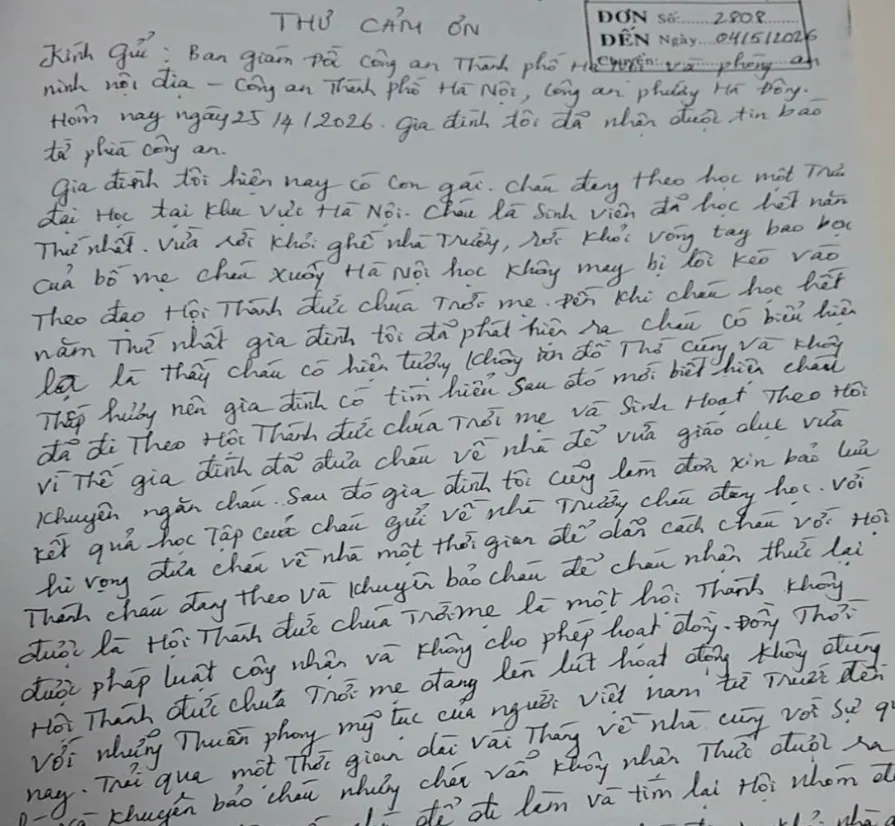 THƯ CẢM ƠN
ĐƠN Số: 2808
ĐẾN Ngày 04/5/2026
Chuyển:
Kính gửi: Ban giám đốc Công an Thành phố Hà Nội và phòng an
ninh nội địa - Công an Thành phố Hà Nội, Công an phường Hà Đông.
Hôm nay ngày 25/4/2026. Gia đình tôi đã nhận được tin báo
từ phía công an.
Gia đình tôi hiện nay có con gái. Cháu đang theo học một Trườ
đại Học tại khu vực Hà Nội. Cháu là Sinh viên đã học hết năm
Thứ nhất. Vừa rời khỏi ghế nhà Trường, rời khỏi vòng tay bao bọc
của bố mẹ cháu xuống Hà Nội học không may bị lôi kéo vào
Theo đạo Hội Thánh đức chúa Trời mẹ. Đến khi cháu học hết
năm Thứ nhất gia đình tôi đã phát hiện ra cháu có biểu hiện
lạ là thấy cháu có hiện tượng không ăn đồ Thờ Cúng và không
Thắp hương nên gia đình có tìm hiểu sau đó mới biết hiện cháu
đã đi Theo Hội Thánh đức chúa Trời mẹ và Sinh Hoạt Theo Hội
vì Thế gia đình đã đưa cháu về nhà để vừa giáo dục vừa
khuyên ngăn cháu. Sau đó gia đình tôi cũng làm đơn xin bảo lưu
kết quả học Tập của cháu gửi về nhà Trường cháu đang học. Với
hi vọng đưa cháu về nhà một thời gian để dãn cách cháu với Hội
Thánh cháu đang theo và khuyên bảo cháu để cháu nhận thức lại
được là Hội Thánh đức chúa Trời mẹ là một hội Thánh không
được pháp luật công nhận và không cho phép hoạt động. Đồng Thời
Hội Thánh đức chúa Trời mẹ đang lén lút hoạt động không đúng
Với những Thuần phong mỹ tục của người Việt nam từ Trước đến
nay. Trải qua một Thời gian dài vài Tháng về nhà cùng với Sự
và khuyên bảo cháu nhưng cháu vẫn không nhận Thức được ra
để đi làm và tìm lại Hội nhóm